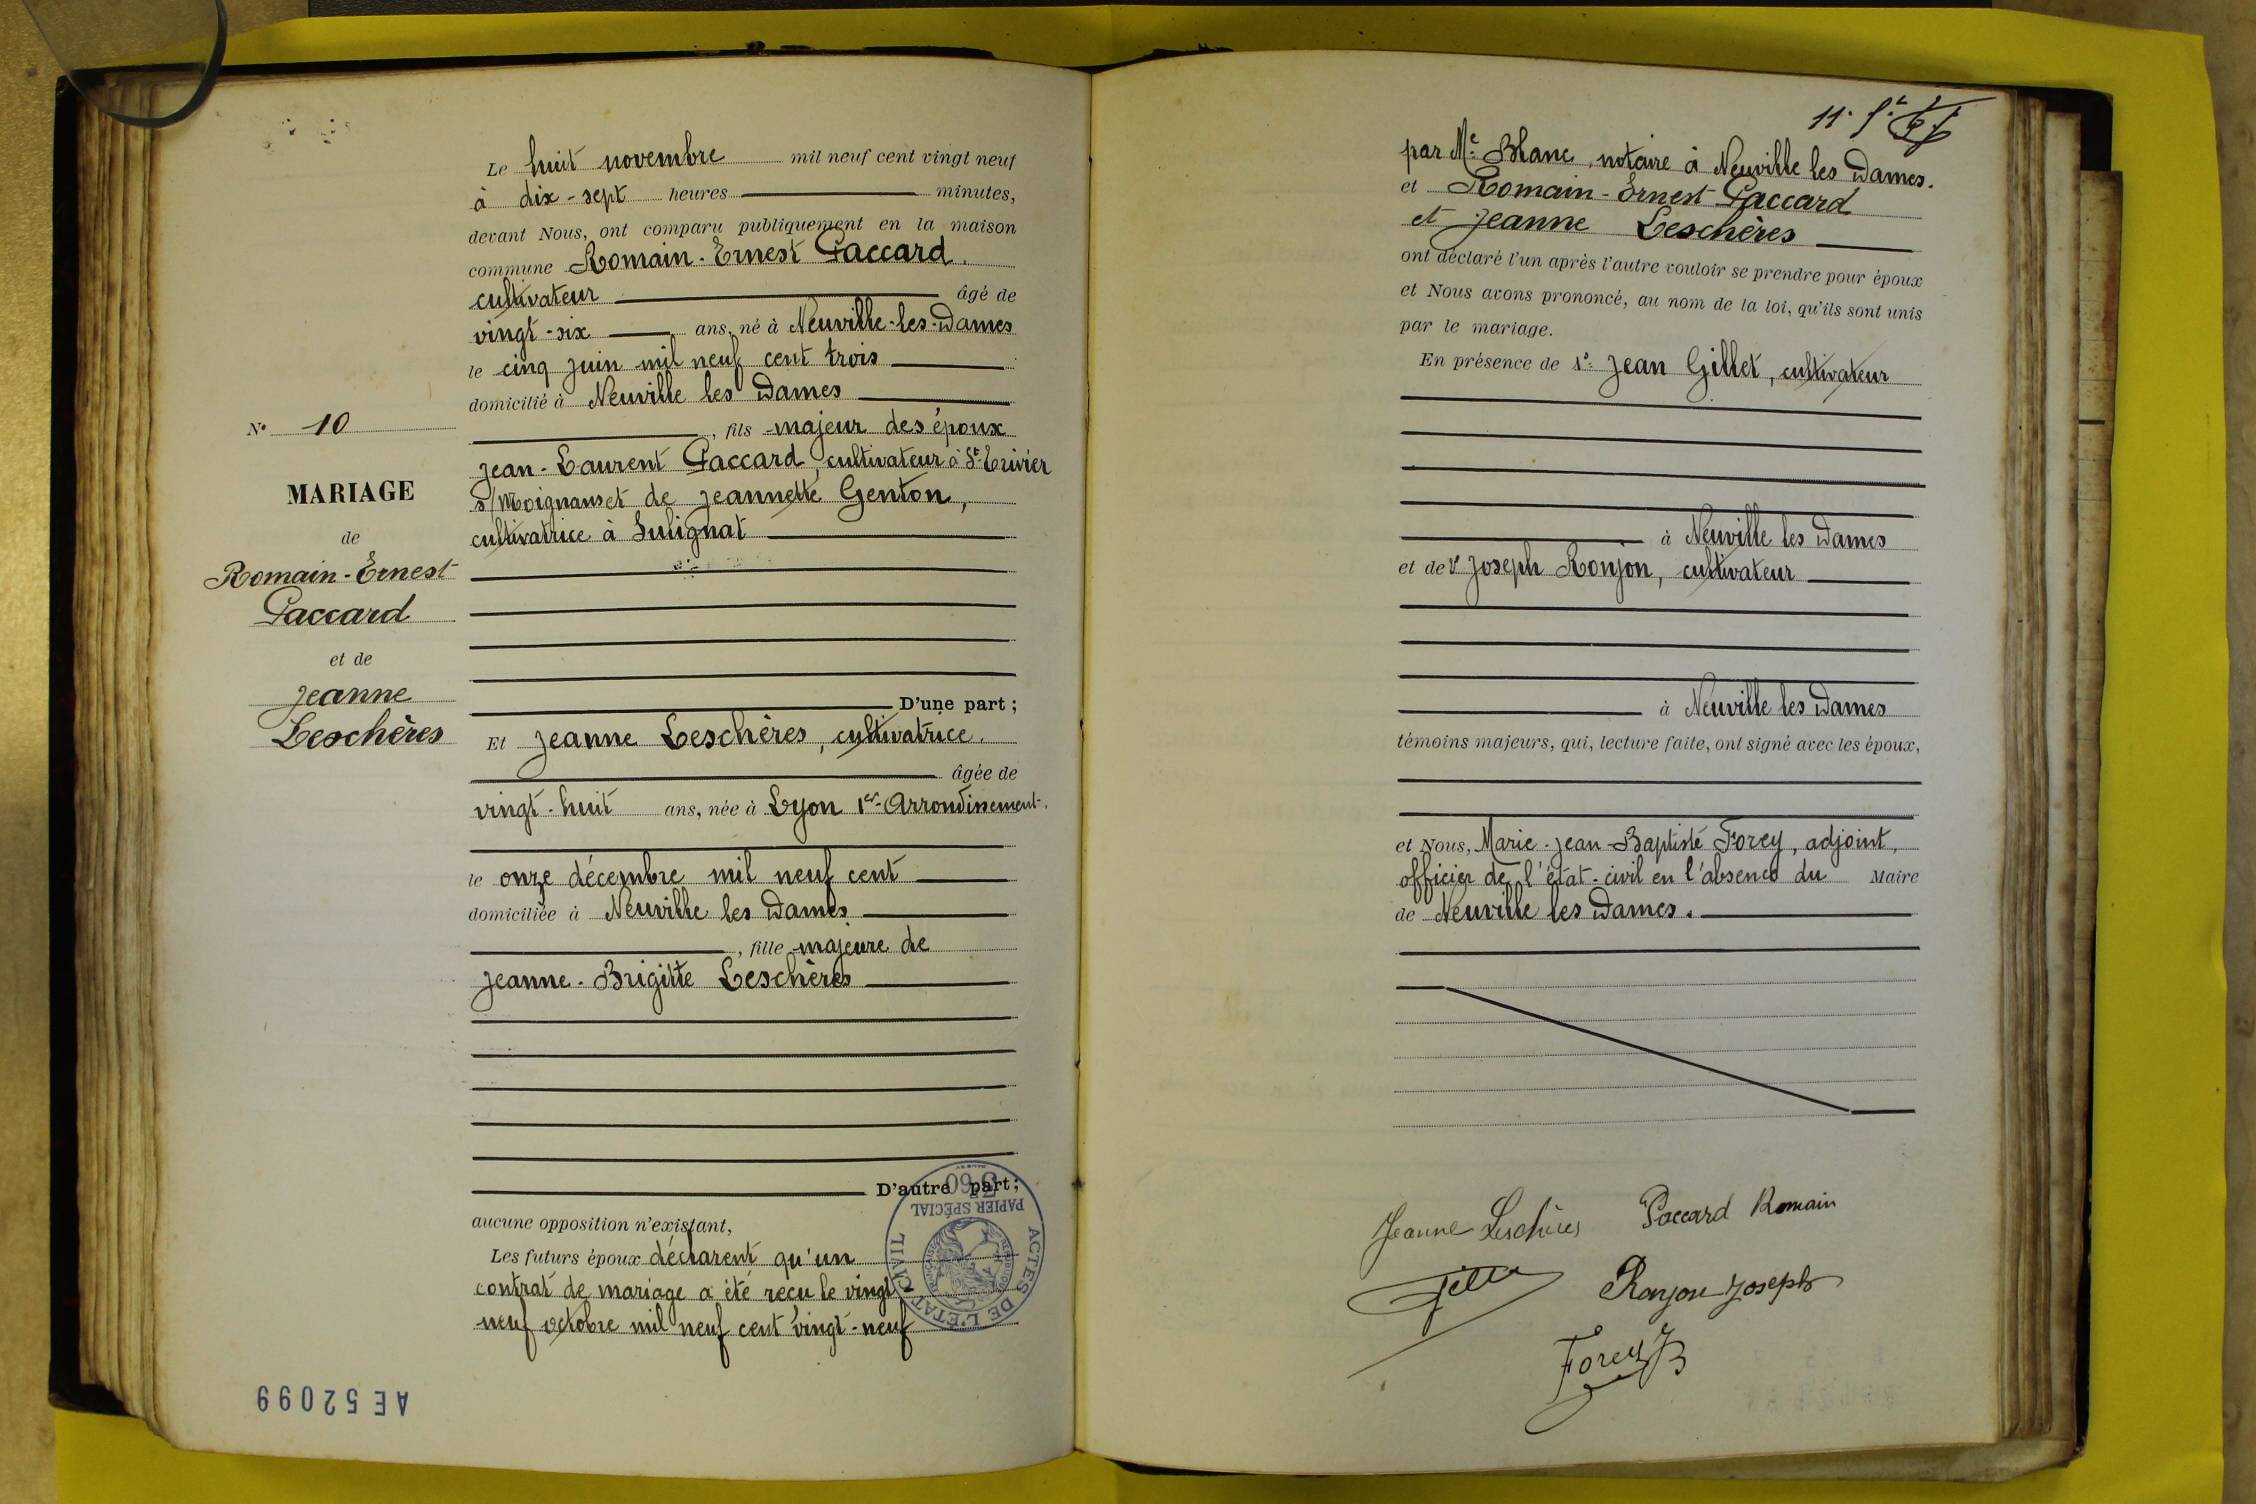 Le huit novembre mil neuf cent vingt neuf
à dix-sept heures minutes,
devant Nous, ont comparu publiquement en la maison
commune Romain-Ernest Paccard,
cultivateur âgé de
vingt-six ans, né à Neuville-les-Dames
le cinq juin mil neuf cent trois
domicilié à Neuville les Dames
, fils majeur des époux
Jean-Laurent Paccard, cultivateur à St-Trivier
s/Moignans et de Jeannette Genton,
cultivatrice à Sulignat
D'une part ;
Et Jeanne Leschères, cultivatrice.
âgée de
vingt-huit ans, née à Lyon 1er Arrondissement.
le onze décembre mil neuf cent
domiciliée à Neuville les Dames
, fille majeure de
Jeanne-Brigitte Leschères
D'autre part ;
aucune opposition n'existant,
Les futurs époux déclarent qu'un
contrat de mariage a été reçu le vingt
neuf octobre mil neuf cent vingt-neuf
N° 10
MARIAGE
de
Romain-Ernest
Paccard
et de
Jeanne
Leschères
ACTES DE L'ÉTAT CIVIL
PAPIER SPÉCIAL
3f60
AE 52099
par Me Blanc, notaire à Neuville les Dames.
et Romain-Ernest Paccard
et Jeanne Leschères
ont déclaré l'un après l'autre vouloir se prendre pour époux
et Nous avons prononcé, au nom de la loi, qu'ils sont unis
par le mariage.
En présence de 1° Jean Gillet, cultivateur
à Neuville les Dames
et de 2° Joseph Ronjon, cultivateur
à Neuville les Dames
témoins majeurs, qui, lecture faite, ont signé avec les époux,
et Nous, Marie-Jean-Baptiste Forey, adjoint,
officier de l'état-civil en l'absence du Maire
de Neuville les Dames.
Jeanne Leschères Paccard Romain
Ronjon Joseph
Forey JB